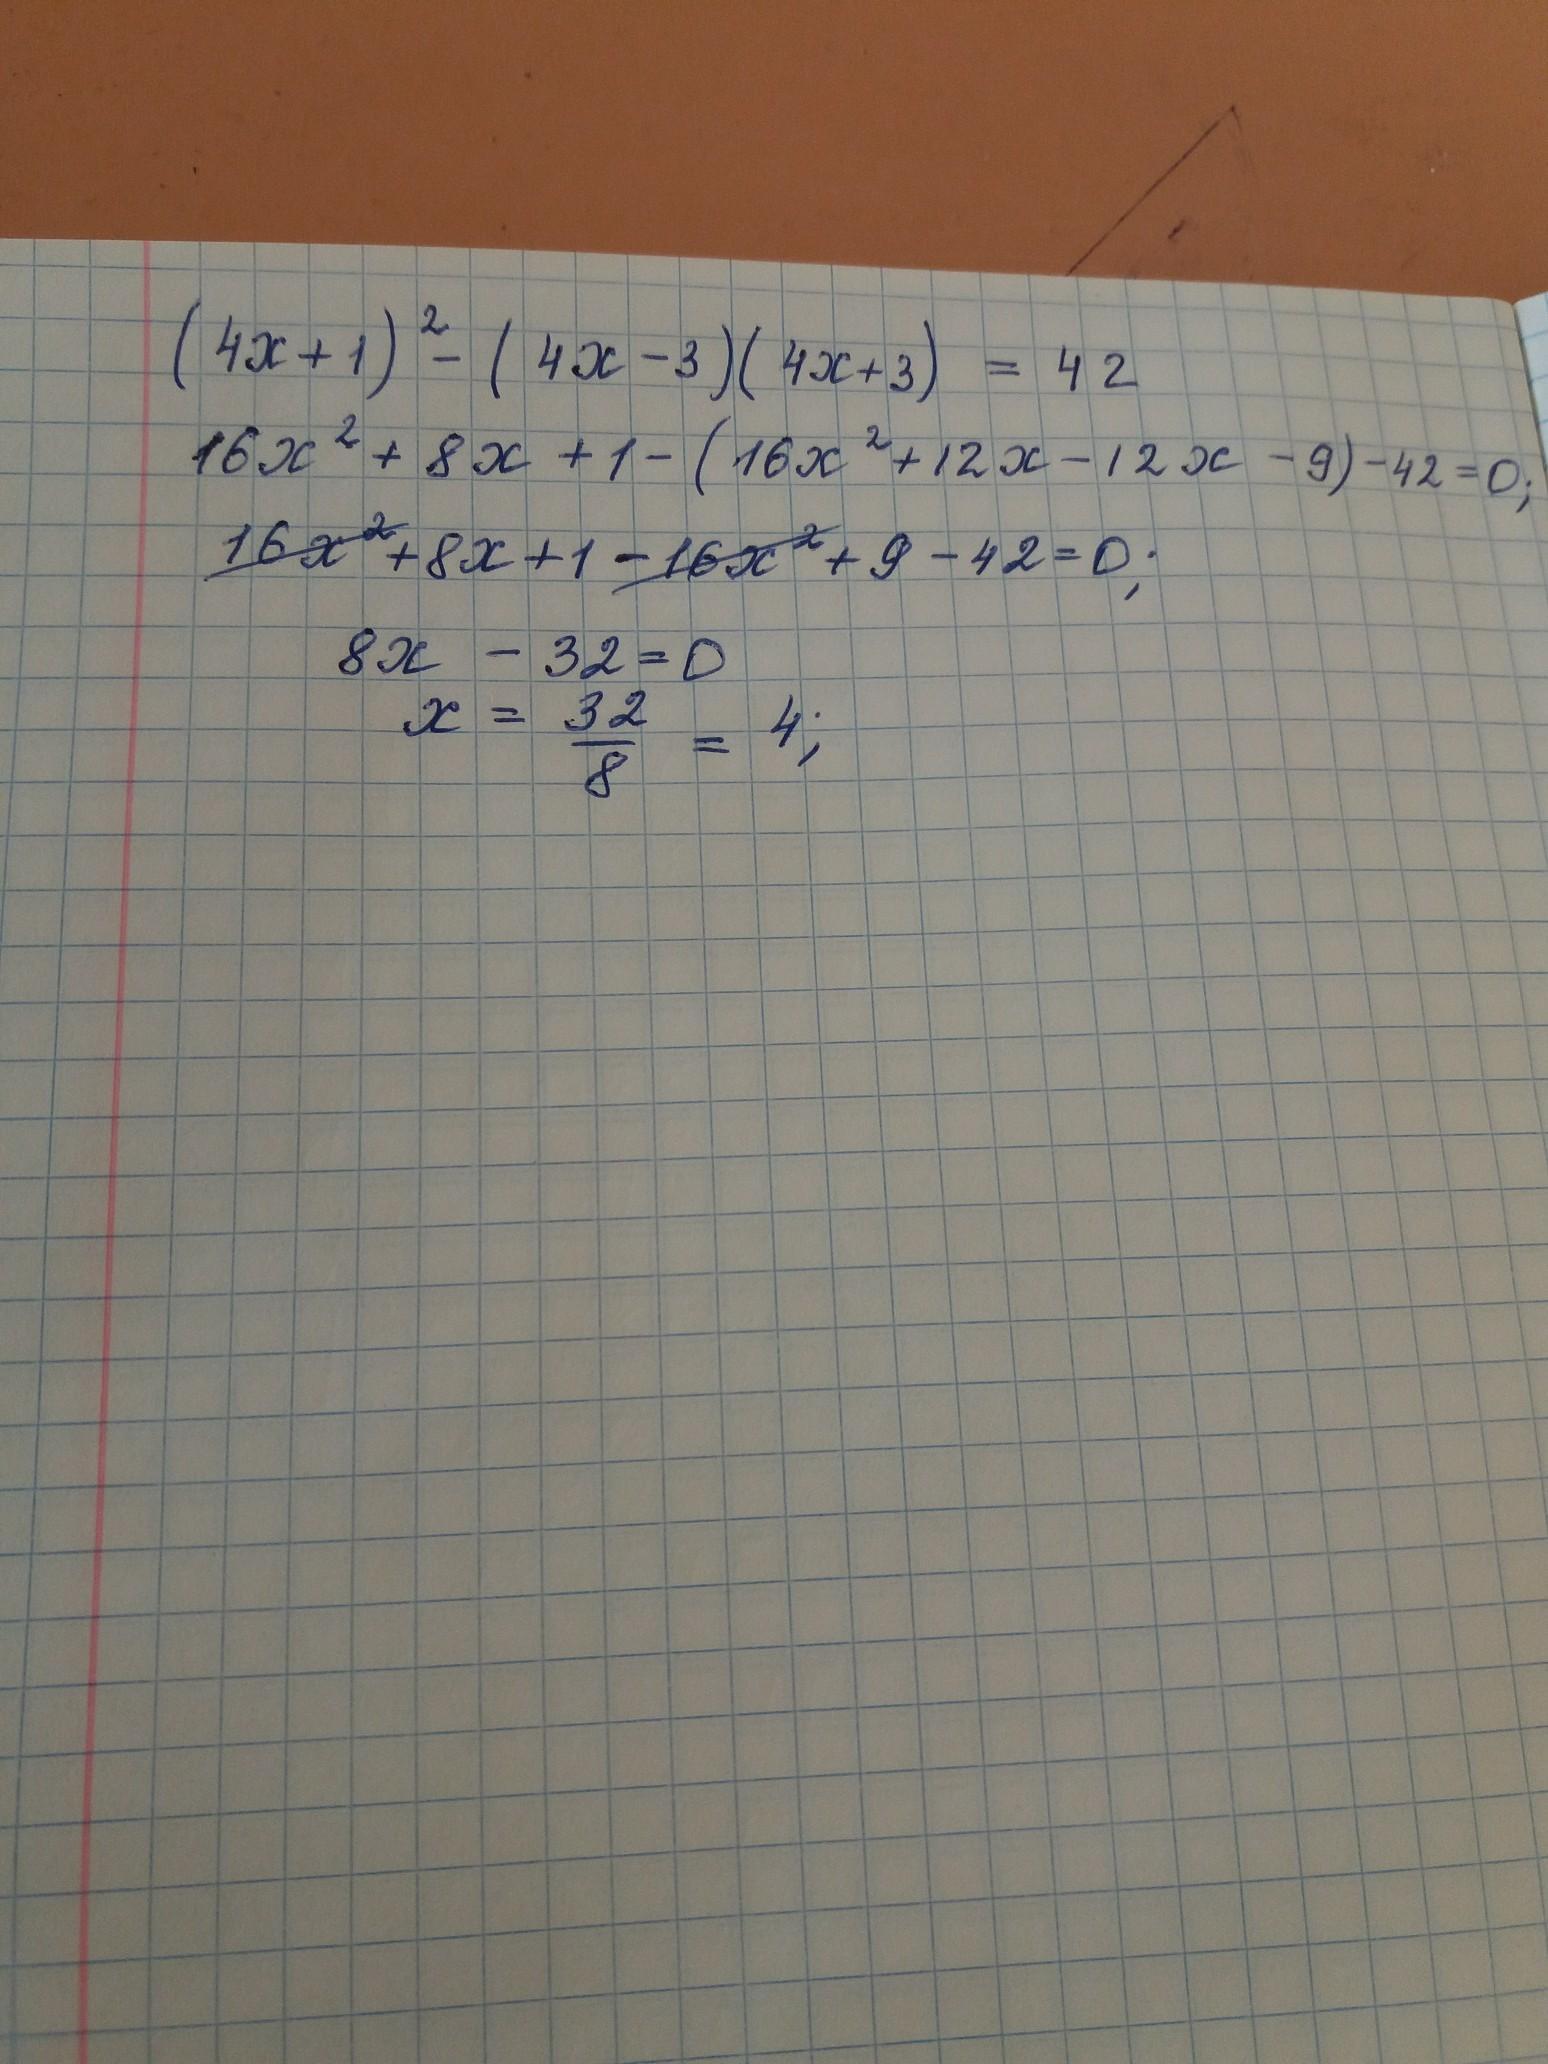 (4x+1)² - (4x-3)(4x+3) = 42
16x² + 8x + 1 - (16x² + 12x - 12x - 9) - 42 = 0;
16x² + 8x + 1 - 16x² + 9 - 42 = 0;
8x - 32 = 0
x = 32/8 = 4;